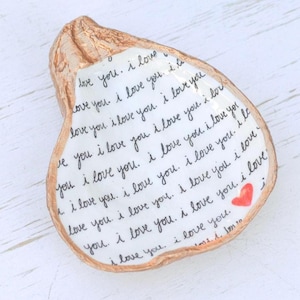 love you. i love you.
love you. i love you. i lo
love you. i love you. i love you. i
you. i love you. i love you. i lov
i love you. i love you. i love you
you. i love you. i love you. i love
i love you. i love you. i love
you. i love you. i love you. i love
love you. i love you. i love
you. i love you. i love you.
i love you. i love you.